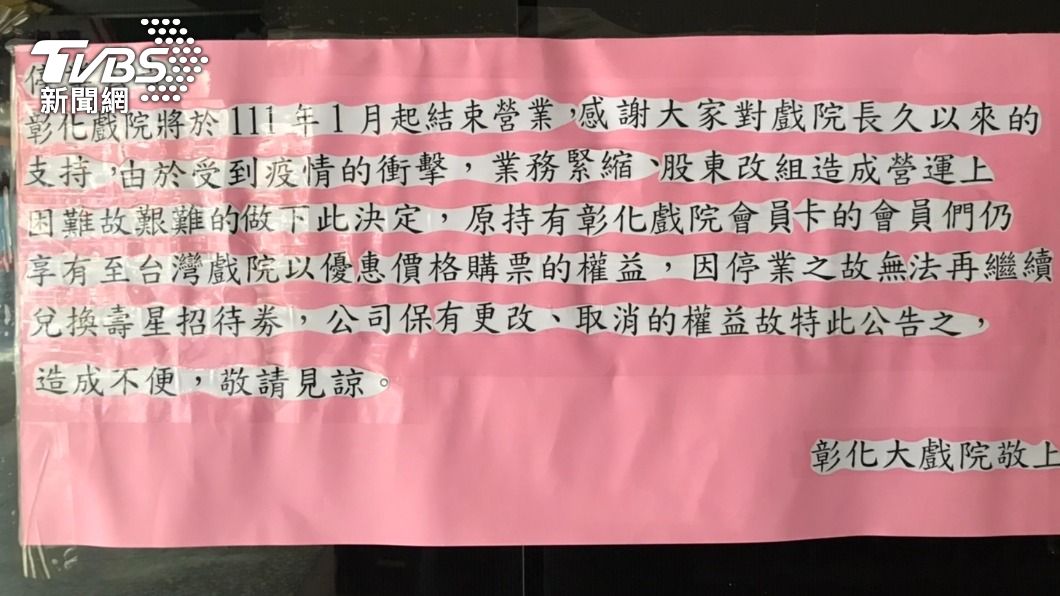 TVBS
新聞網
彰化戲院將於111年1月起結束營業,感謝大家對戲院長久以來的
支持,由於受到疫情的衝擊，業務緊縮、股東改組造成營運上
困難故艱難的做下此決定，原持有彰化戲院會員卡的會員們仍
享有至台灣戲院以優惠價格購票的權益，因停業之故無法再繼續
兌換壽星招待券，公司保有更改、取消的權益故特此公告之，
造成不便，敬請見諒。
彰化大戲院敬上